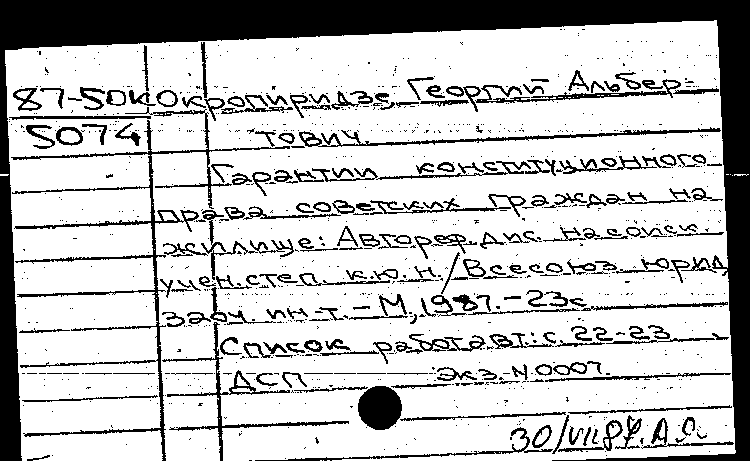 87-5ДК Окропиридзе, Георгий Альбер-
5074 тович.
Гарантии конституционного
права советских граждан на
жилище: Автореф. дис. на соиск.
учен. степ. к.ю.н./Всесоюз. юрид.
заоч. ин-т. - М, 1987. - 23с
Список работ авт.: с. 22-23.
ДСП Экз. N0007.
30/VII 87. А.Я.